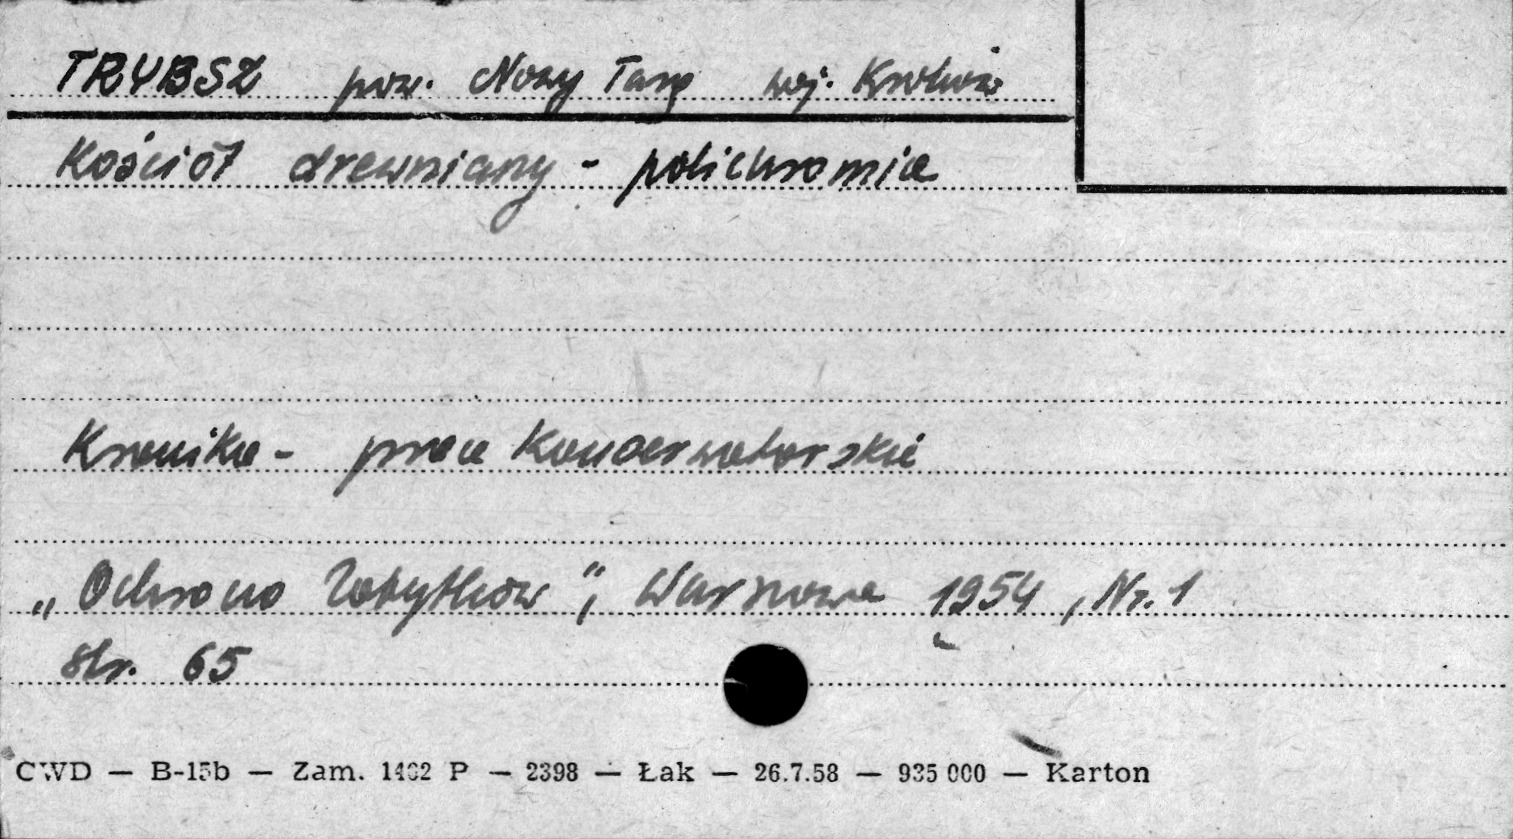 TRYBSZ pow. Nowy Targ woj. Kraków
Kościół drewniany - polichromia
Kronika - prace Konserwatorskie
„Ochrona Zabytków”, Warszawa 1954, Nr. 1
str. 65
CWD — B-15b — Zam. 1462 P — 2398 — Łak — 26.7.58 — 935 000 — Karton